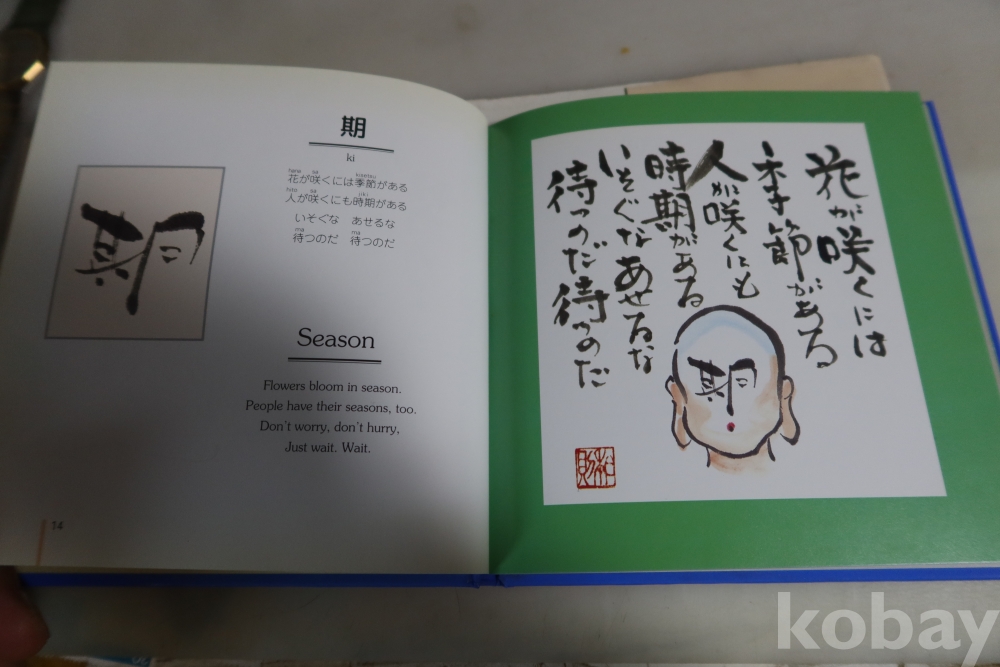 期
ki
花が咲くには季節がある
人が咲くにも時期がある
いそぐな あせるな
待つのだ 待つのだ
期
Season
Flowers bloom in season.
People have their seasons, too.
Don't worry, don't hurry,
Just wait. Wait.
14
花が咲くには
季節がある
人が咲くにも
時期がある
いそぐなあせるな
待つのだ待つのだ
期
kobay